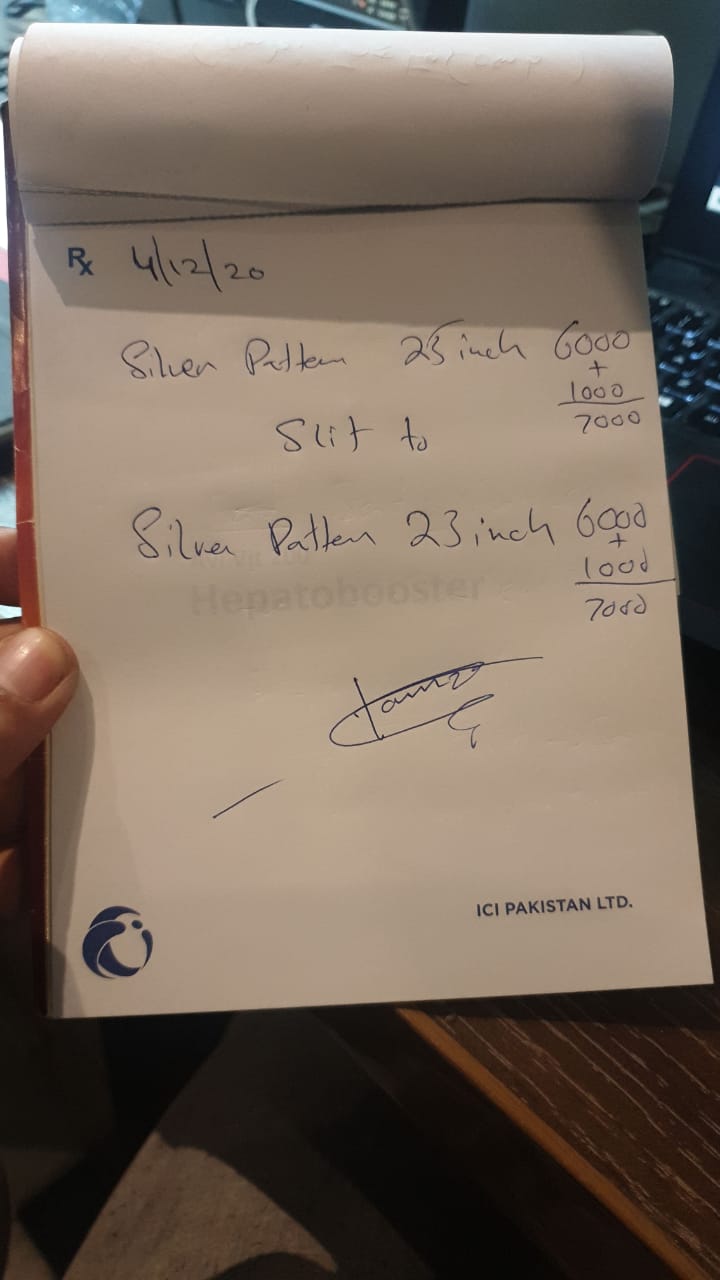 Rx 4/12/20
Silver Pattern 25 inch 6000
+
1000
7000
Slit to
Silver Pattern 23 inch 6000
+
1000
7000
Hepatobooster
ICI PAKISTAN LTD.